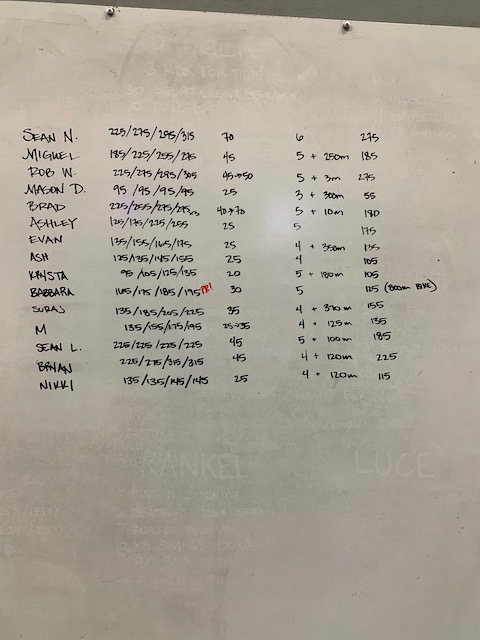 SEAN N. 225/275/295/315 70 6 275
MIGUEL 185/225/255/275 45 5 + 250m 185
ROB W. 225/275/295/305 45→50 5 + 3m 275
MASON D. 95/95/95/95 25 3 + 300m 55
BRAD 225/255/275/295 40→70 5 + 10m 180
ASHLEY 125/175/225/255 25 5 175
EVAN 135/155/165/175 25 4 + 350m 135
ASH 125/135/145/155 25 4 105
KRYSTA 95/105/125/135 20 5 + 180m 105
BARBARA 165/175/185/195 PR! 30 5 125 (800m BIKE)
SURAJ 135/185/205/225 35 4 + 370m 155
M 135/155/175/195 25→35 4 + 125m 135
SEAN L. 225/225/225/225 45 5 + 100m 185
BRYAN 225/275/315/315 45 4 + 120m 225
NIKKI 135/135/145/145 25 4 + 120m 115
RANKEL LUCE